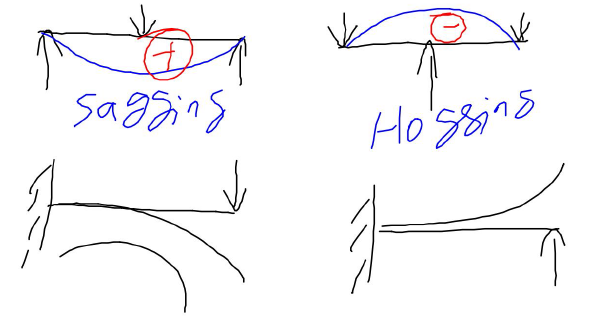 +
-
Sagging
Hogging